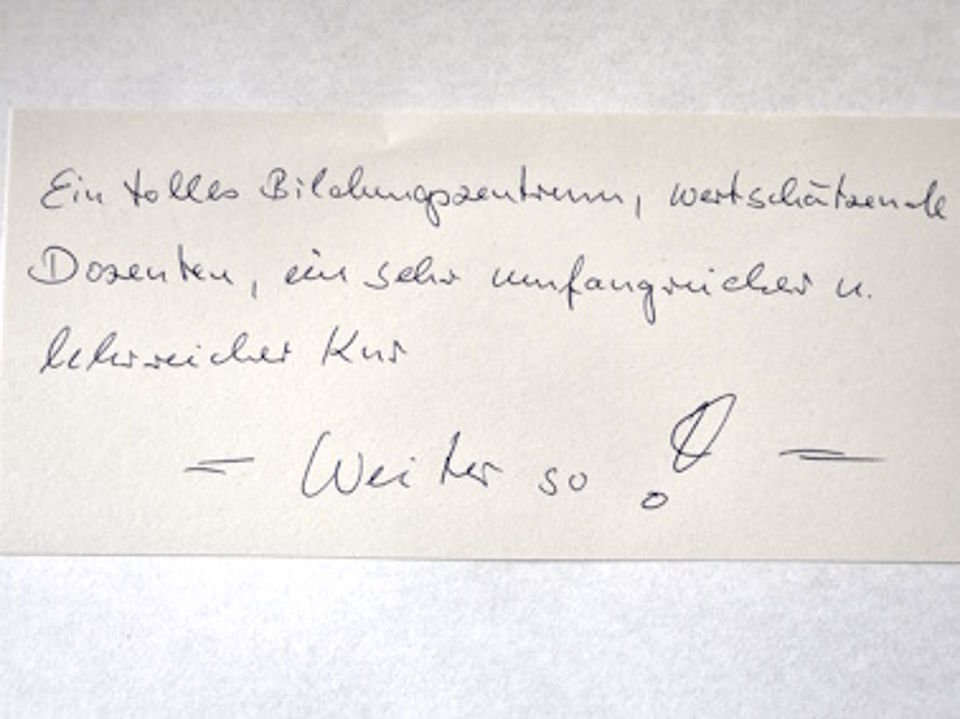 Ein tolles Bildungszentrum, wertschätzende
Dozenten, ein sehr umfangreicher u.
lehrreicher Kur
= Weiter so ! =